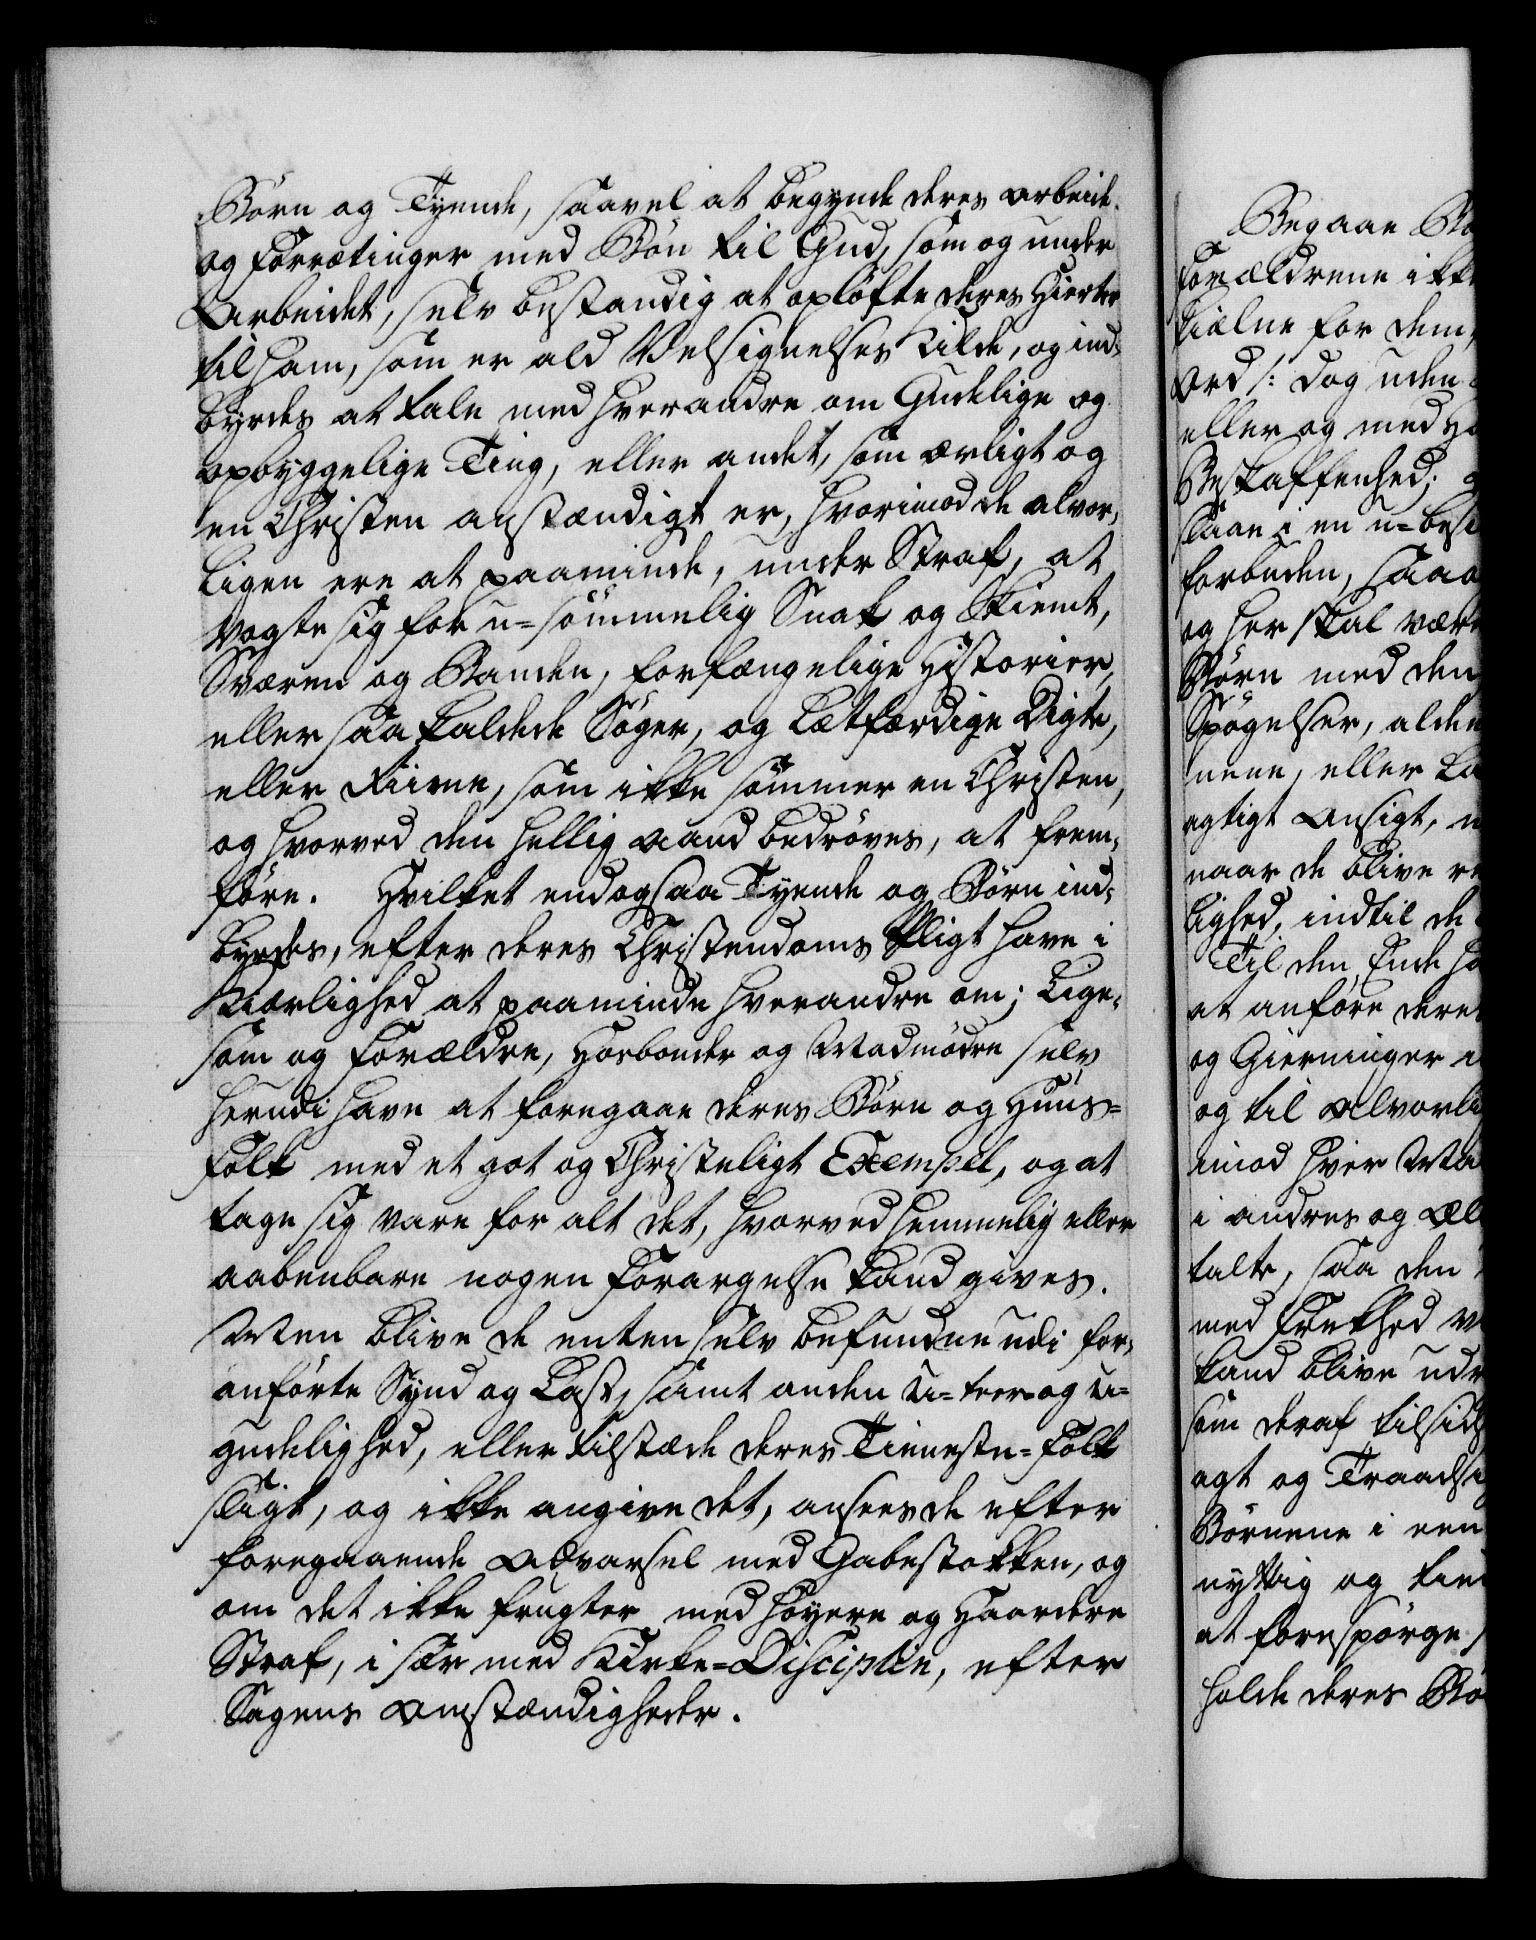 Börn og Tyende, saavel at begynde deres Arbeide
og Forretninger med Bön til Gud, som og under
Arbeidet, selv bestandig at oplöfte deres Hierter
til ham, som er ald Velsignelses Kilde, og ind-
byrdes at tale med hverandre om Gudelige og
opbyggelige Ting, eller andet, som ærligt og
en Christen anstændigt er, hvorimod de alvor-
ligen ere at paaminde, under Straf, at
vogte sig for u-sömmelig Snak og Skiemt,
Sværen og Banden, forfængelige Historier,
eller saa kaldede Söger, og Letfærdige Digte,
eller Riime, som ikke sömmer en Christen,
og hvorved den hellig Aand bedröves, at frem-
före. Hvilket endogsaa Tyende og Börn ind-
byrdes, efter deres Christendoms Pligt have i
Kiærlighed at paaminde hverandre om; Lige-
som og Forældre, Hosbonder og Madmödre selv
herudi have at foregaae deres Börn og Huus-
Folk med et got og Christeligt Exempel, og at
tage sig vare for alt det, hvorved hemmelig eller
aabenbare nogen Forargelse kand gives.
Men blive de enten selv befundne udi for-
anförte Synd og Last, samt anden U-teer- og U-
gudelighed, eller tilstæde deres Tienneste-Folk
sligt, og ikke angive det, ansees de efter
foregaaende Advarsel med Gabestokken, og
om det ikke frugter med höyere og Haardere
Straf, i sær med Kirke-Disciplin, efter
Sagens Omstændigheder.
Begaae Bö
Forældrene ikke
skielne for dem,
Ord /: dog uden
eller og med
Beskaffenhed;
slaae i en u-besi
forbuden, saa
og her skal være
Börn med den
Spögelser, alden
nene, eller La
agtigt Ansigt,
naar de blive re
lighed, indtil de
Til den Ende ha
at anföre deres
og Gierninger i
og til alvorli
imod hver Ma
i andres og Æl
talte, saa den
med Frækhed
kand blive udr
som deraf tilsids
agt og Traadsi
Börnene i een
nyttig og tien
at forespörge
holde deres Bö